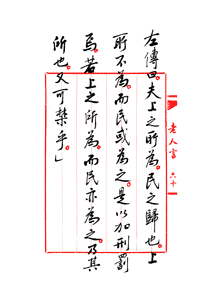 左傳曰夫上之所為民之歸也。上
所不為。而民或為之。是以加刑罰
焉。若上之所為。而民亦為之。乃其
所也。又可禁乎」
老人言 六十